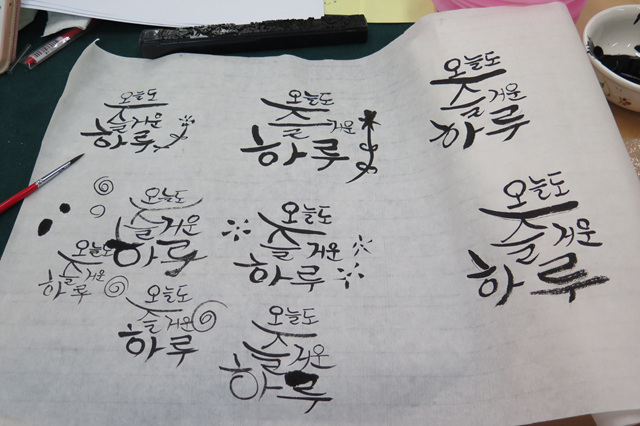 오늘도
즐거운
하루
오늘도
즐거운
하루
오늘도
즐거운
하루
오늘도
즐거운
하루
오늘도
즐거운
하루
오늘도
즐거운
하루
오늘도
즐거운
하루
오늘도
즐거운
하루
오늘도
즐거운
하루